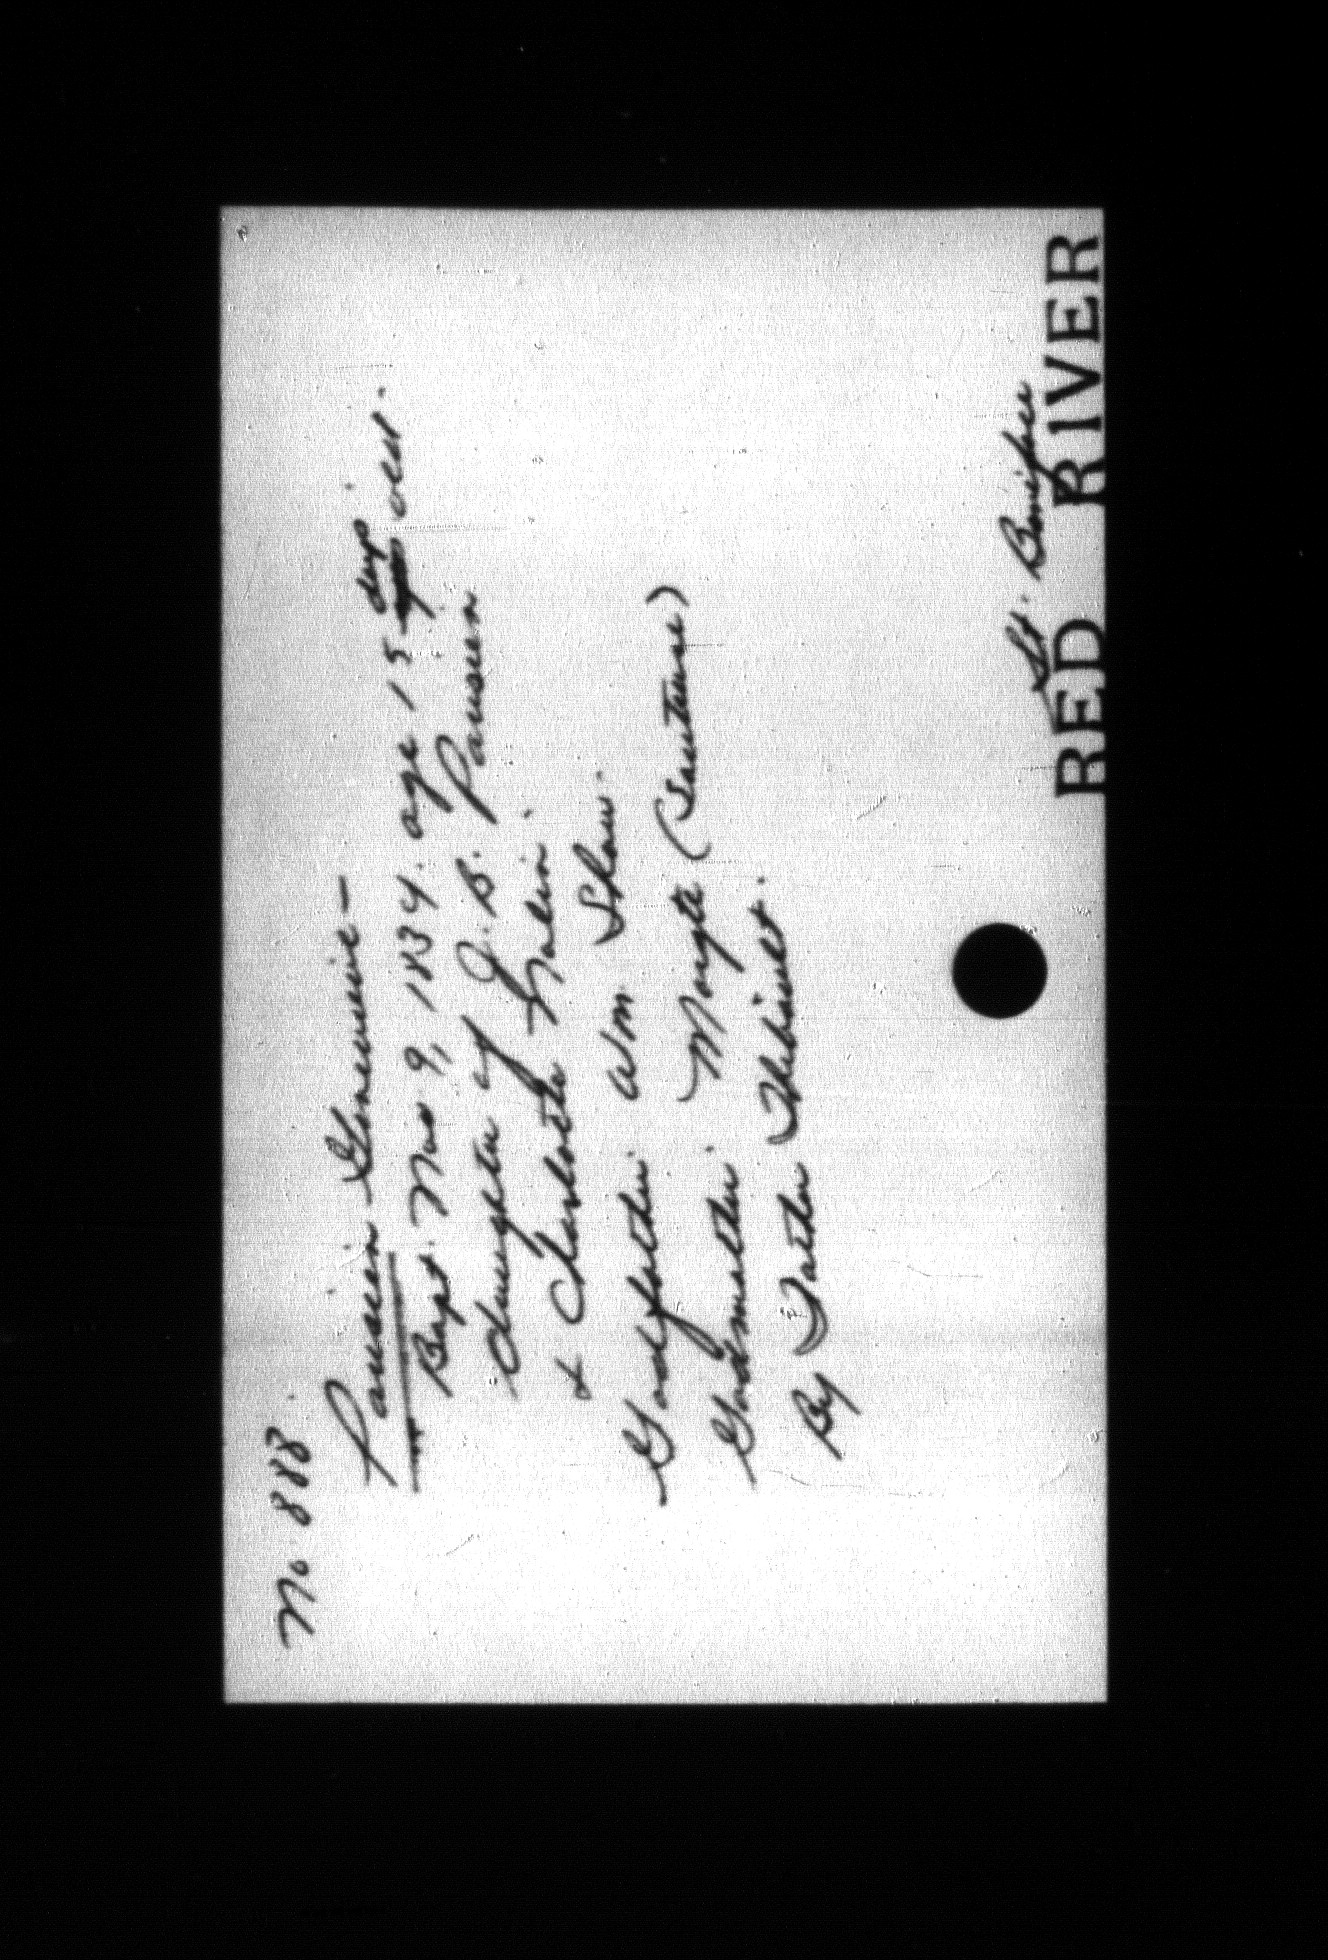 No. 888.
Pausein Genevieve -
Bapt. Nov 9, 1834. age 15 days old.
daughter of J. B. Pausein
& Charlotte
Godfather. Wm. Shaw.
Godmother. Margte (Sauteuse)
By Father Thibault.
St. Boniface
RED RIVER